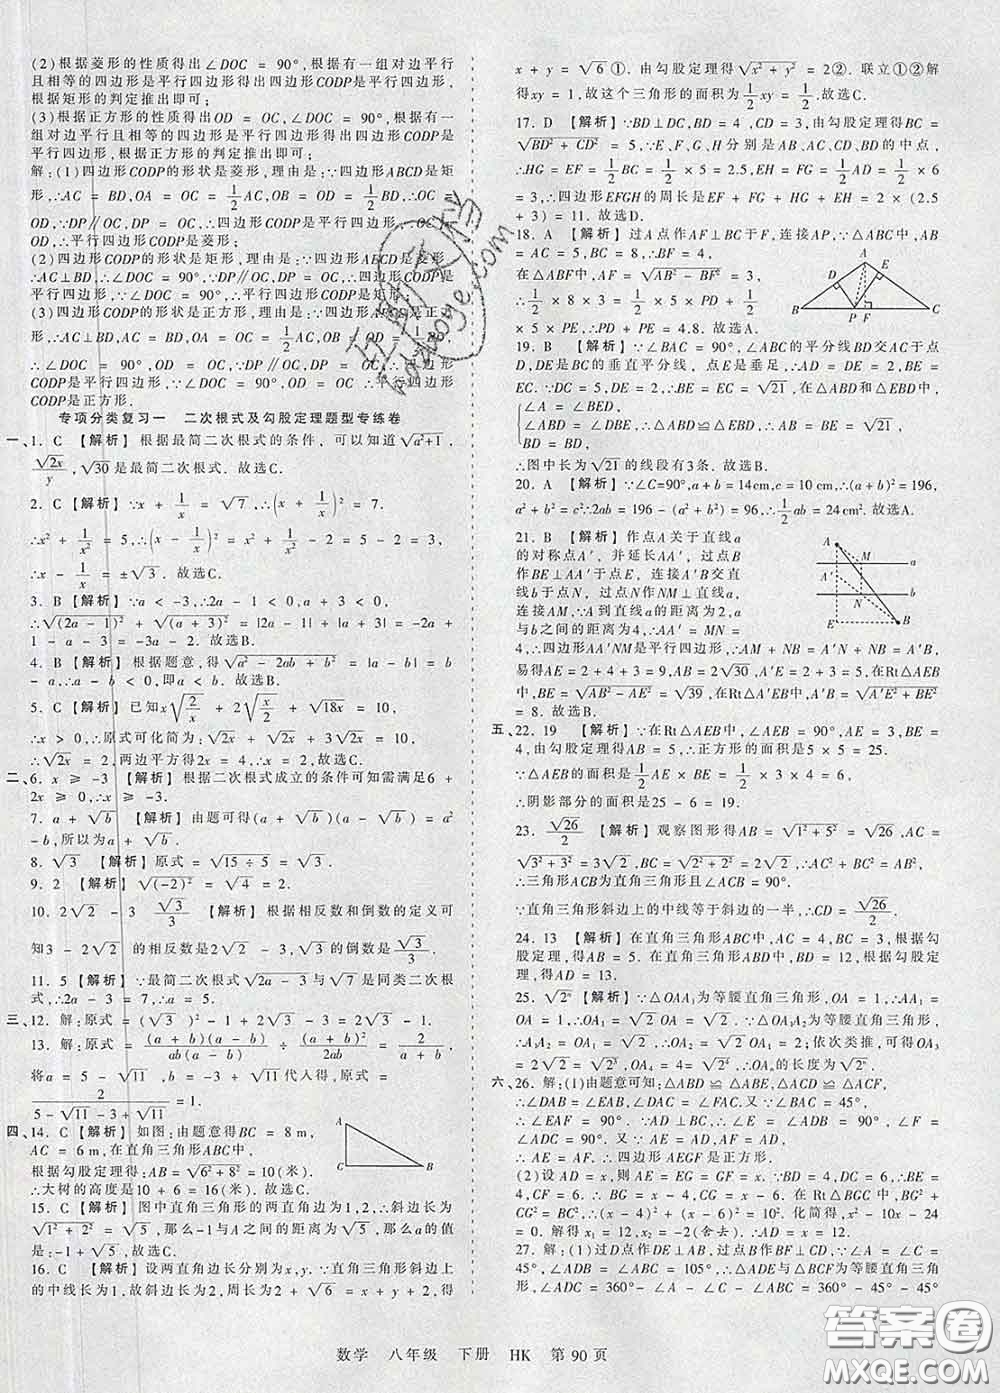 (2)根据菱形的性质得出∠DOC = 90°,根据有一组对边平行
且相等的四边形是平行四边形得出四边形CODP是平行四边形,
根据矩形的判定推出即可;
(3)根据正方形的性质得出OD = OC,∠DOC = 90°,根据有一
组对边平行且相等的四边形是平行四边形得出四边形CODP是
平行四边形,根据正方形的判定推出即可;
解:(1)四边形CODP的形状是菱形,理由是:∵四边形ABCD是矩
形,∴AC = BD,OA = OC = 1/2 AC,OB = OD = 1/2 BD,∴OC =
OD,∵DP∥OC,DP = OC,∴四边形CODP是平行四边形,∵OC =
OD,∴平行四边形CODP是菱形;
(2)四边形CODP的形状是矩形,理由是:∵四边形ABCD是菱形,
∴AC⊥BD,∴∠DOC = 90°,∵DP∥OC,DP = OC,∴四边形
CODP是平行四边形,∵∠DOC = 90°,∴平行四边形CODP是矩形;
(3)四边形CODP的形状是正方形,理由是:∵四边形ABCD是正方形,
∴AC⊥BD,AC = BD,OA = OC = 1/2 AC,OB = OD = 1/2 BD,
∴∠DOC = 90°,OD = OC,∵DP∥OC,DP = OC,∴四边形CODP
是平行四边形,∵∠DOC = 90°,OD = OC,∴平行四边形CODP是正方形.
专项分类复习一 二次根式及勾股定理题型专练卷
一、1. C 【解析】根据最简二次根式的条件,可以知道√(a²+1),
√(2x)/y,√30是最简二次根式.故选C.
2. C 【解析】∵x + 1/x = √7,∴(x + 1/x)² = 7.
∴x² + 1/x² = 5,∴(x - 1/x)² = x² + 1/x² - 2 = 5 - 2 = 3,
∴x - 1/x = ±√3.故选C.
3. B 【解析】∵a < -3,∴2a - 1 < 0,a + 3 < 0,
∴√((2a - 1)²) + √((a + 3)²) = |2a - 1| + |a + 3| = -2a +
1 - a - 3 = -3a - 2.故选B.
4. B 【解析】根据题意,得√(a² - 2ab + b²) = |a - b| = b
- a,即a - b ≤ 0.故选B.
5. C 【解析】已知x√(2/x) + 2√(x/2) + √(18x) = 10,
∵x > 0,∴原式可化简为:√(2x) + √(2x) + 3√(2x) = 10,
∴√(2x) = 2,两边平方得:2x = 4,∴x = 2.故选C.
二、6. x ≥ -3 【解析】根据二次根式成立的条件可知需满足6 +
2x ≥ 0,∴x ≥ -3.
7. a + √b 【解析】由题可得(a + √b)(a - √b) = a²
- b,所以为a + √b.
8. √3 【解析】原式 = √(15 ÷ 5) = √3.
9. 2 【解析】√((-2)²) = √4 = 2.
10. 2√2 - 3 √3/3 【解析】根据相反数和倒数的定义可
知3 - 2√2的相反数是2√2 - 3,√3的倒数是√3/3.
11. 5 【解析】∵最简二次根式√(2a - 3)与√7是同类二次根
式,∴2a - 3 = 7,解得:a = 5.
三、12. 解:原式 = (√3)² - 1 + 2√2 = 3 - 1 + 2√2 = 2 + 2√2.
13. 解:原式 = (a + b)(a - b)/(ab(a - b)) ÷ (a + b)²/(2ab) = 2/(a + b),
将a = 5 - √11,b = -3 + √11代入得,原式 =
2/(5 - √11 - 3 + √11) = 1.
四、14. C 【解析】如图:由题意得BC = 8 m,
AC = 6 m,在直角三角形ABC中,
根据勾股定理得:AB = √(6² + 8²) = 10(米).
∴大树的高度是10 + 6 = 16(米).故选C.
A
C B
15. C 【解析】图中直角三角形的两直角边为1,2,∴斜边长为
√(1² + 2²) = √5,那么-1与A之间的距离为√5,那么a的值
是:-1 + √5,故选C.
16. C 【解析】设两直角边长分别为x,y.∵直角三角形斜边上
的中线长为1,故斜边长为2,∵周长为2 + √6 = x + y + 2,得
x + y = √6①.由勾股定理得√(x² + y²) = 2②.联立①②解
得xy = 1,故这个三角形的面积为1/2 xy = 1/2.故选C.
17. D 【解析】∵BD⊥DC,BD = 4,CD = 3,由勾股定理得BC =
√(BD² + CD²) = 5.∵E、F、G、H分别是AB、AC、CD、BD的中点,
∴HG = 1/2 BC = EF = 5/2,EH = FG = 1/2 AD = 1/2 × 6
= 3,∴四边形EFGH的周长是EF + FG + HG + EH = 2 × (2.5
+ 3) = 11.故选D.
18. A 【解析】过A点作AF⊥BC于F,连接AP,∵△ABC中,AB
= AC = 5,BC = 8,∴BF = 4,
在△ABF中,AF = √(AB² - BF²) = 3,
∴1/2 × 8 × 3 = 1/2 × 5 × PD + 1/2
× 5 × PE,∴PD + PE = 4.8.故选A.
A
D E
B P F C
19. B 【解析】∵∠BAC = 90°,∠ABC的平分线BD交AC于点
D,DE是BC的垂直平分线,点E是垂足,∴∠BED = ∠A =
90°,∠ABD = ∠DBE,BE = EC = √21,在△ABD与△EBD中,
∠A = ∠BED,
∠ABD = ∠DBE,∴△ABD≌△EBD,∴AB = BE = √21,
BD = BD,
∴图中长为√21的线段有3条.故选B.
20. A 【解析】∵∠C = 90°,a + b = 14cm,c = 10 cm,∴(a + b)² = 196,
a² + b² = c²,∴2ab = 196 - (a² + b²) = 96,∴1/2 ab = 24cm².故选A.
21. B 【解析】作点A关于直线a
的对称点A′,并延长AA′,过点B
作BE⊥AA′于点E,连接A′B交直
线b于点N,过点N作NM⊥直线a,
连接AM,∵A到直线a的距离为2,a
与b之间的距离为4,∴AA′ = MN =
4,∴四边形AA′NM是平行四边形,∴AM + NB = A′N + NB = A′B,
易得AE = 2 + 4 + 3 = 9,AB = 2√30,A′E = 5,在Rt△AEB
中,BE = √(AB² - AE²) = √39,在Rt△A′EB中,A′B = √(A′E² + BE²)
= 8.故选B.
A
M a
A′
N b
E B
五、22. 19 【解析】∵在Rt△AEB中,∠AEB = 90°,AE = 3,BE =
4,由勾股定理得AB = 5,∴正方形的面积是5 × 5 = 25.
∵△AEB的面积是1/2 AE × BE = 1/2 × 3 × 4 = 6,
∴阴影部分的面积是25 - 6 = 19.
23. √26/2 【解析】观察图形得AB = √(1² + 5²) = √26,AC =
√(3² + 3²) = 3√2,BC = √(2² + 2²) = 2√2,∴AC² + BC² = AB²,
∴三角形ABC为直角三角形且∠ACB = 90°,
∵直角三角形斜边上的中线等于斜边的一半,∴CD = √26/2.
24. 13 【解析】在直角三角形ABC中,AC = 4,BC = 3,根据勾
股定理,得AB = 5.在直角三角形ABD中,BD = 12,根据勾股
定理,得AD = 13.
25. √(2ⁿ) 【解析】∵△OAA₁为等腰直角三角形,OA = 1,∴AA₁
= OA = 1,∴OA₁ = √2OA = √2.∵△OA₁A₂为等腰直角三角形,
∴A₁A₂ = OA₁ = √2,∴OA₂ = √2OA₁ = 2;依次类推,可得OA₃
= 2√2 = √(2³),OA₄ = √(2⁴),…,∴OAₙ的长度为√(2ⁿ).
六、26. 解:(1)由题意可知:△ABD≌△ABE,△ACD≌△ACF,
∴∠DAB = ∠EAB,∠DAC = ∠FAC.又∠BAC = 45°,
∴∠EAF = 90°.∵AD⊥BC,∴∠E = ∠ADB = 90°,∠F
= ∠ADC = 90°.又∵AE = AD,AF = AD,∴AE = AF.∴四边
形AEGF是正方形;
(2)设AD = x,则AE = EG = GF = x.∵BD = 4,DC = 6,∴BE =
4,CF = 6.∴BG = x - 4,CG = x - 6.在Rt△BGC中,BG² +
CG² = BC²,∴(x - 4)² + (x - 6)² = 10².化简得,x² - 10x - 24
= 0.解得x₁ = 12,x₂ = -2(舍去).∴AD = x = 12.
27. 解:(1)过D点作DE⊥AB,过点B作BF⊥CD,
∵∠BAD = ∠ABC = 105°,△ADE与△BCF为直角三角形,
∴∠ADC = 360° - ∠A - ∠C - ∠ABC = 360° - 45° - 45°
数学 八年级 下册 HK 第90页
答案圈
MXQE.COM